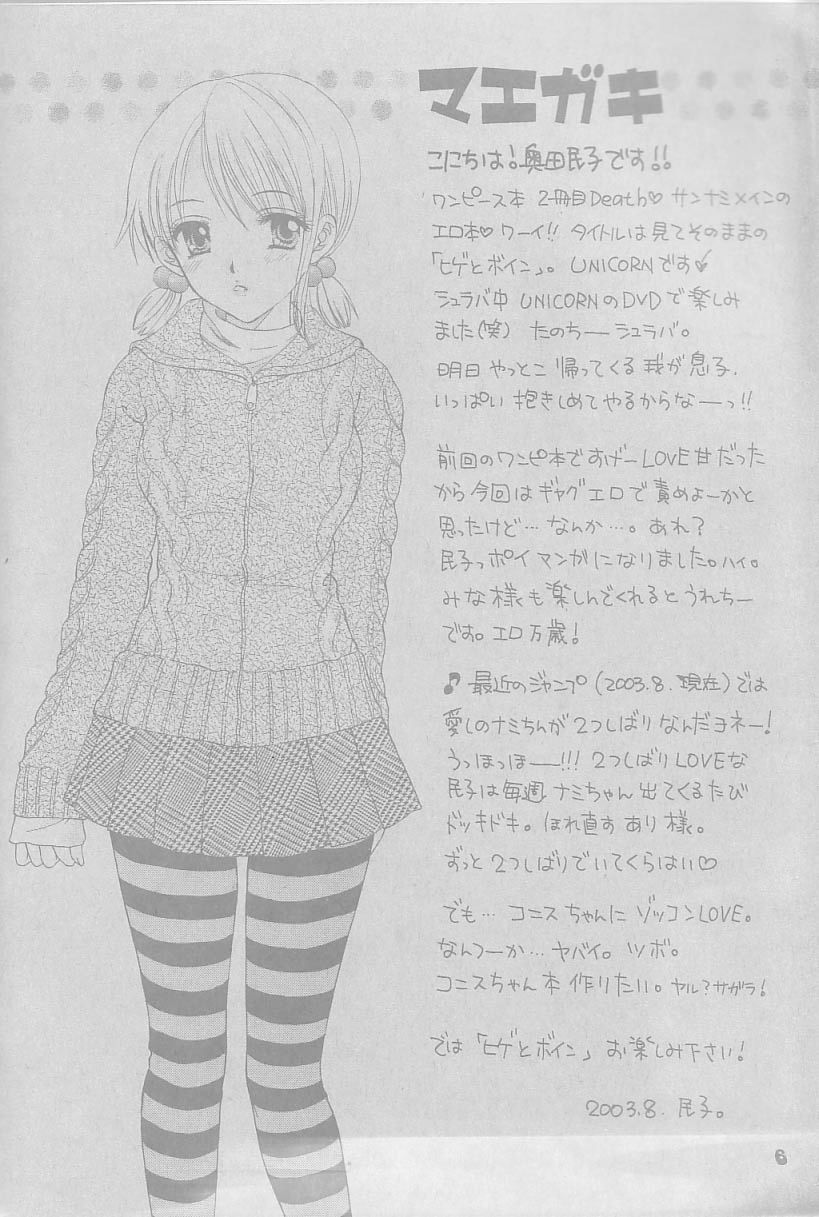 マエガキ
こにちは!奥田民子です!!
ワンピース本 2冊目Death♡ サンナミメインの
エロ本♡ ワーイ!! タイトルは見てそのままの
「ヒゲとボイン」。UNICORNです
シュラバ中 UNICORNのDVDで楽しみ
ました(笑) たのちーシュラバ。
明日 やっとこ 帰ってくる 我が息子、
いっぱい 抱きしめてやるからなーっ!!
前回のワンピ本ですげーLOVE甘だった
から今回はギャグエロで責めよーかと
思ったけど…なんか…。あれ?
民子っポイマンガになりました。ハイ。
みな様も楽しんでくれるとうれちー
です。エロ万歳!
♪最近のジャンプ(2003.8.現在)では
愛しのナミちんが2つしばりなんだヨネー!
うっほっほー!!! 2つしばりLOVEな
民子は毎週ナミちゃん出てくるたび
ドッキドキ。ほれ直す あり様。
ずっと2つしばりでいてくらはい♡
でも…コニスちゃんにゾッコンLOVE。
なんつーか…ヤバイ。ツボ。
コニスちゃん本 作りたい。ヤル?サガラ!
では「ヒゲとボイン」お楽しみ下さい!
2003.8. 民子。
6